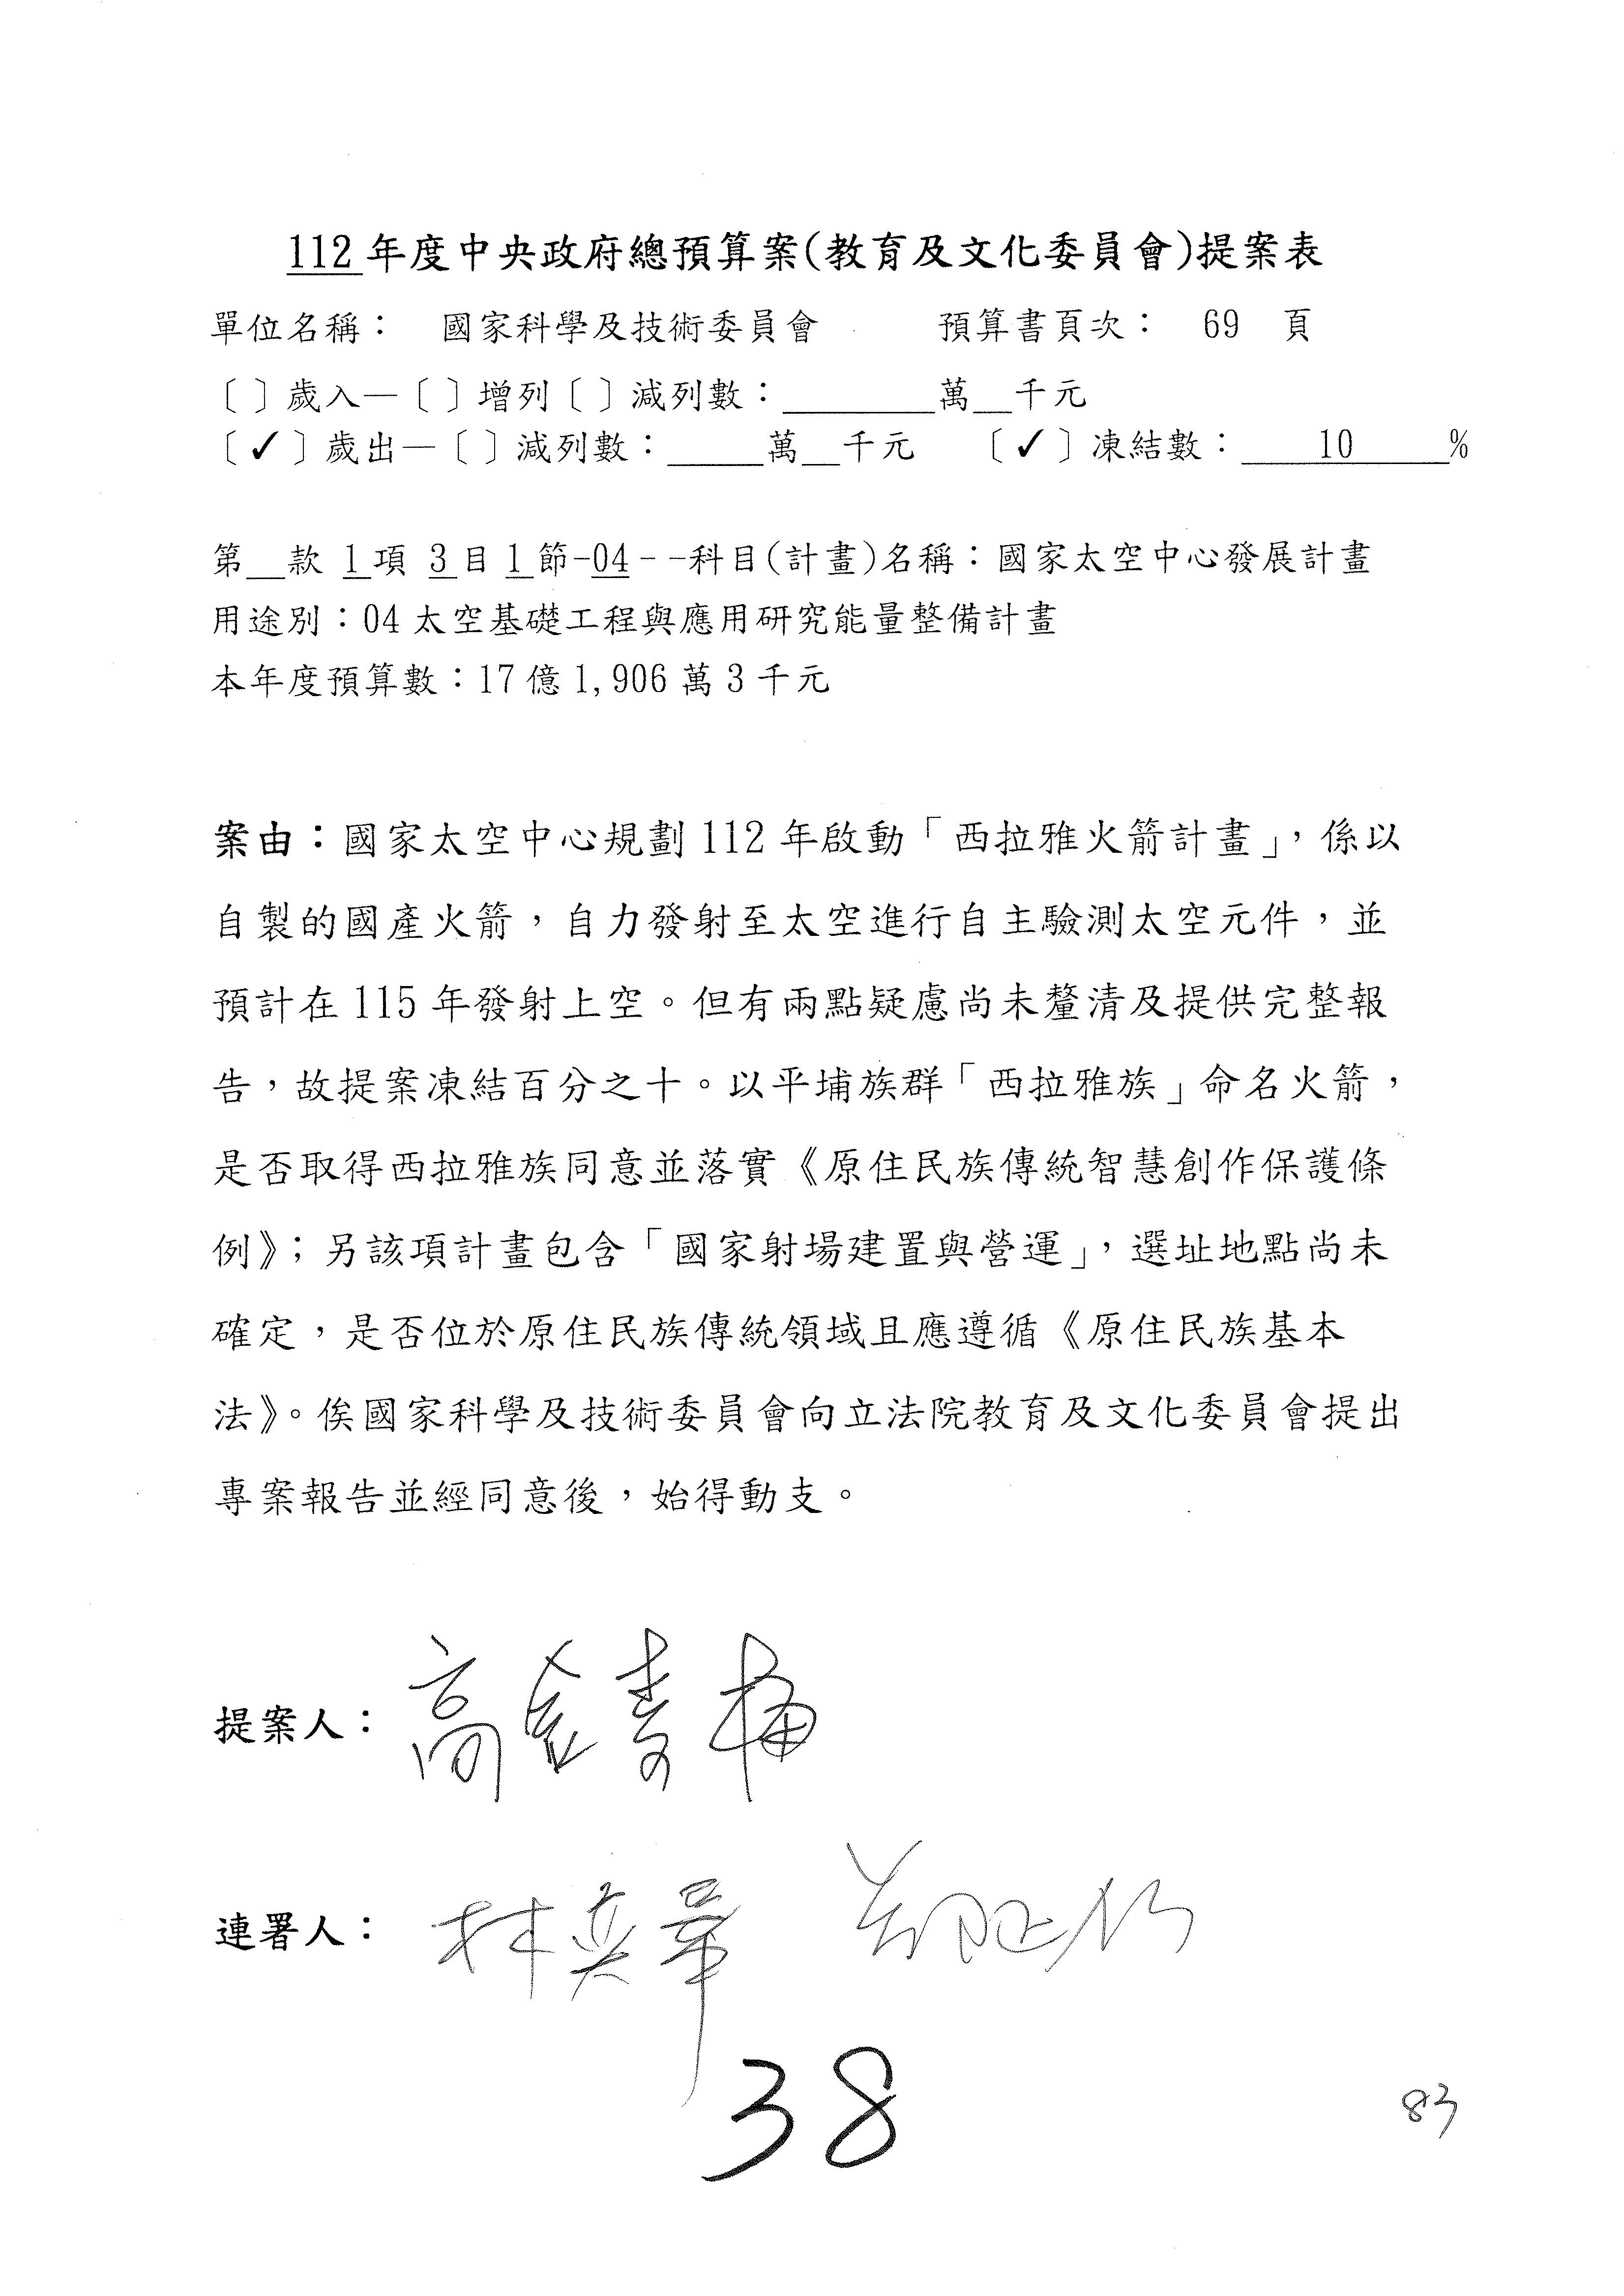 112年度中央政府總預算案(教育及文化委員會)提案表
單位名稱： 國家科學及技術委員會 預算書頁次： 69 頁
〔 〕歲入—〔 〕增列〔 〕減列數：________萬__千元
〔✓〕歲出—〔 〕減列數：_____萬__千元 〔✓〕凍結數： 10 %
第__款 1項 3目 1節-04--科目(計畫)名稱：國家太空中心發展計畫
用途別：04 太空基礎工程與應用研究能量整備計畫
本年度預算數：17 億 1,906 萬 3 千元
案由：國家太空中心規劃 112 年啟動「西拉雅火箭計畫」，係以
自製的國產火箭，自力發射至太空進行自主驗測太空元件，並
預計在 115 年發射上空。但有兩點疑慮尚未釐清及提供完整報
告，故提案凍結百分之十。以平埔族群「西拉雅族」命名火箭，
是否取得西拉雅族同意並落實《原住民族傳統智慧創作保護條
例》；另該項計畫包含「國家射場建置與營運」，選址地點尚未
確定，是否位於原住民族傳統領域且應遵循《原住民族基本
法》。俟國家科學及技術委員會向立法院教育及文化委員會提出
專案報告並經同意後，始得動支。
提案人：高金素梅
連署人：
38
83